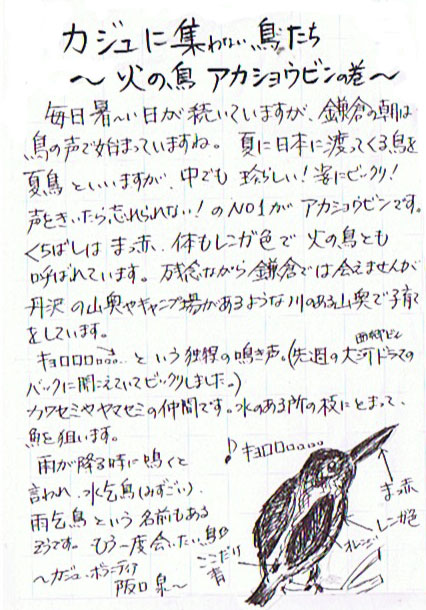 カジュに集わない鳥たち
～火の鳥 アカショウビンの巻～
毎日暑～い日が続いていますが、鎌倉の朝は
鳥の声で始まっていますね。夏に日本に渡ってくる鳥を
夏鳥といいますが、中でも 珍らしい！姿にビックリ！
声をきいたら忘れられない！のNO1がアカショウビンです。
くちばしは まっ赤、体もレンガ色で 火の鳥とも
呼ばれています。残念ながら鎌倉では会えませんが
丹沢の山奥やキャンプ場があるような川のある山奥で子育て
をしています。
キョロロロ……という独特の鳴き声。(先週の大河ドラマの
バックに聞えていてビックリしました。)
カワセミやヤマセミの仲間です。水のある所の枝にとまって、
魚を狙います。
雨が降る時に鳴くと
言われ、水乞鳥(みずごい)、
雨乞鳥という名前もある
そうです。もう一度会いたい鳥
～カジュ・ボランティア
阪口 泉～
♪キョロロロ……
まっ赤
レンガ色
オレンジ
ここだけ
青